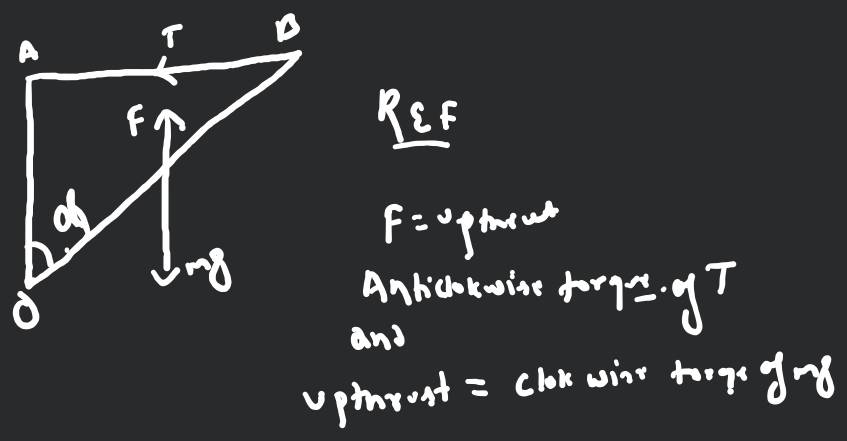 A T B
F
α
mg
O
REF
F = upthrust
Anticlokwise torque of T
and
upthrust = Clokwise torqe of mg